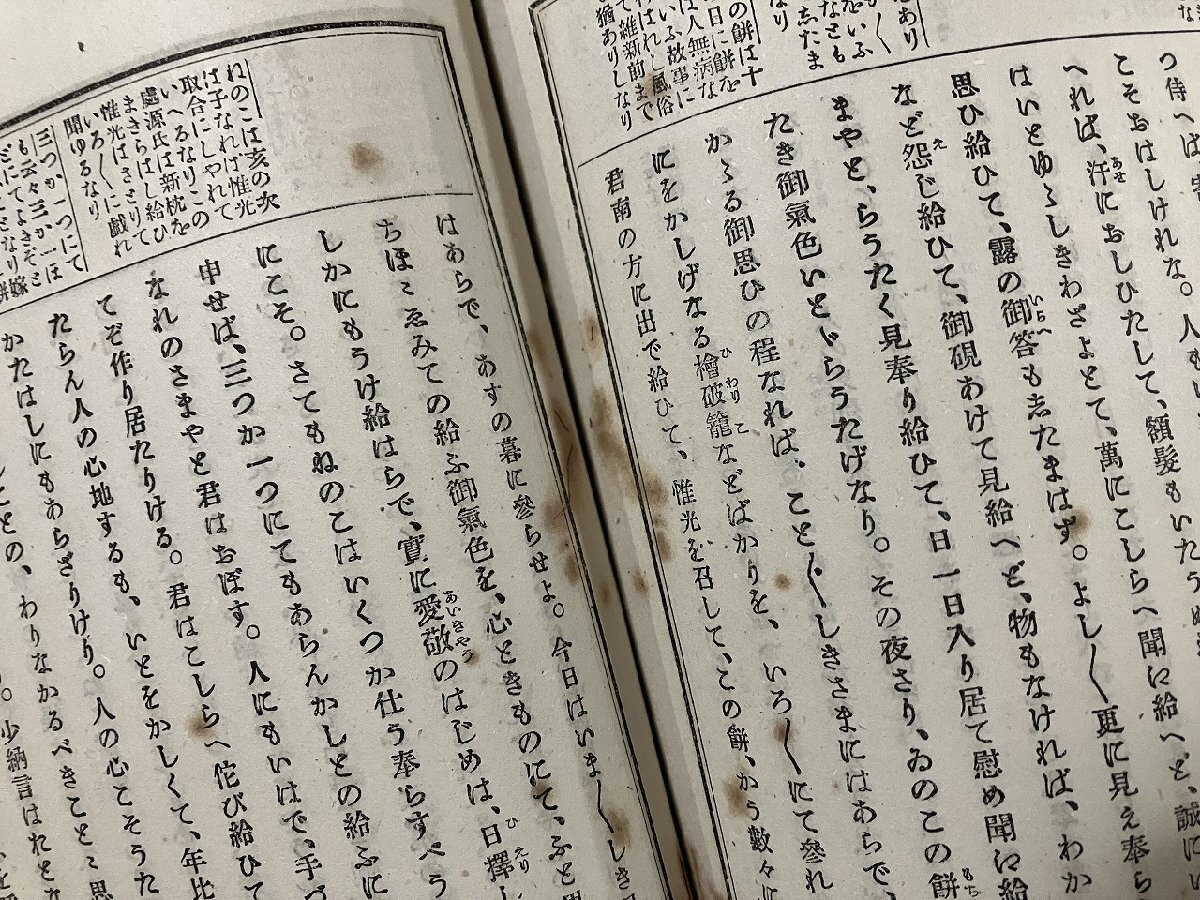 こそおはしけれな。人も
へれば、汗におしひたして、額髮もいたう
はいとゆゝしきわざよとて、萬にこしらへ聞え給へど、誠に
思ひ給ひて、露の御答も志たまはず。よし〳〵更に見え奉ら
など怨じ給ひて、御硯あけて見給へど、物もなければ、わか
まやと、らうたく見奉り給ひて、日一日入り居て慰め聞え給
たき御氣色いとゞらうたげなり。その夜さり、ゐのこの餅
かゝる御思ひの程なれば、こと〴〵しきさまにはあらで、
にをかしげなる檜破籠などばかりを、いろ〳〵にて參れ
君南の方に出で給ひて、惟光を召して、この餅、かう數々に
の餅は十
日に餅を
は人無病な
いふ故事に
はれし風俗
て維新前まで
猶ありしなり
はあらで、あすの暮に參らせよ。今日はいま〳〵しき日
ちほゝゑみての給ふ御氣色を、心ときものにて、ふと思
しかにもうけ給はらで、實に愛敬のはじめは、日擇し
にこそ。さてもねのこはいくつか仕う奉らすべう
申せば、三つか一つにてもあらんかしとの給ふに
なれのさまやと君はおぼす。人にもいはで、手づ
てぞ作り居たりける。君はこしらへ佗び給ひて
たらん人の心地するも、いとをかしくて、年比
かたはしにもあらざりけり。人の心こそうた
ことの、わりなかるべきことゝ思
少納言はおとな
ねのこは亥の次
は子なれば惟光
取合にしやれて
いへるなりこの
處源氏は新枕を
まきらはし給ひ
惟光はさとりて
いろ〳〵に戯れ
聞ゆるなり
三つか一つにて
も云々三か一ほ
どにてよきぞさ